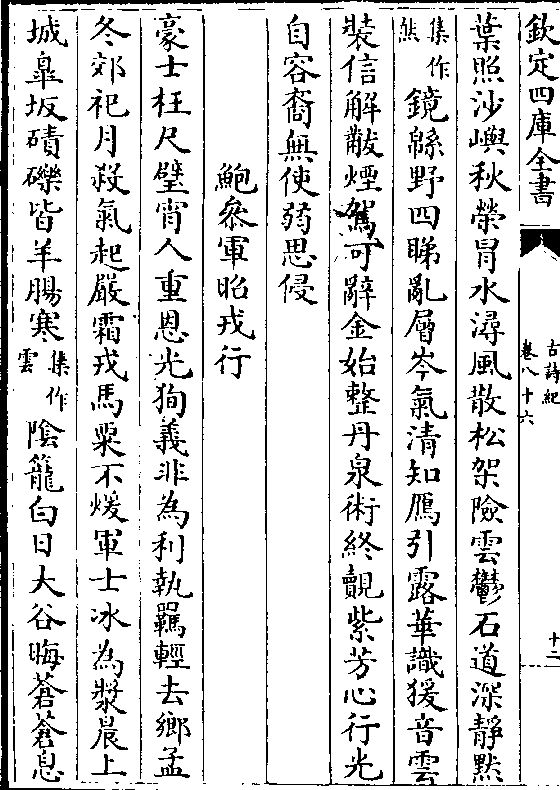 欽定四庫全書
古詩紀
卷八十六
十二
葉照沙嶼秋榮冒水潯風散松架險雲鬱石道深靜默
集作
然
鏡緜野四睇亂層岑氣清知鴈引露華識猨音雲
裝信解黻煙駕可辭金始整丹泉術終覿紫芳心行光
自容裔無使弱思侵
鮑叅軍昭戎行
豪士枉尺璧宵人重恩光狥義非為利執羈輕去鄉孟
冬郊祀月殺氣起嚴霜戎馬粟不煖軍士冰為漿晨上
城臯坂磧礫皆羊腸寒
集作
雲
陰籠白日大谷晦蒼蒼息